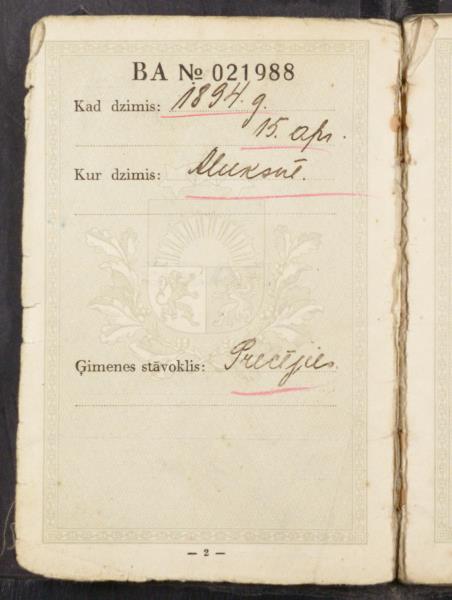 BA № 021988
Kad dzimis: 1894. g.
15. apr.
Kur dzimis: Aluksnē.
Ģimenes stāvoklis: Precējies.
— 2 —